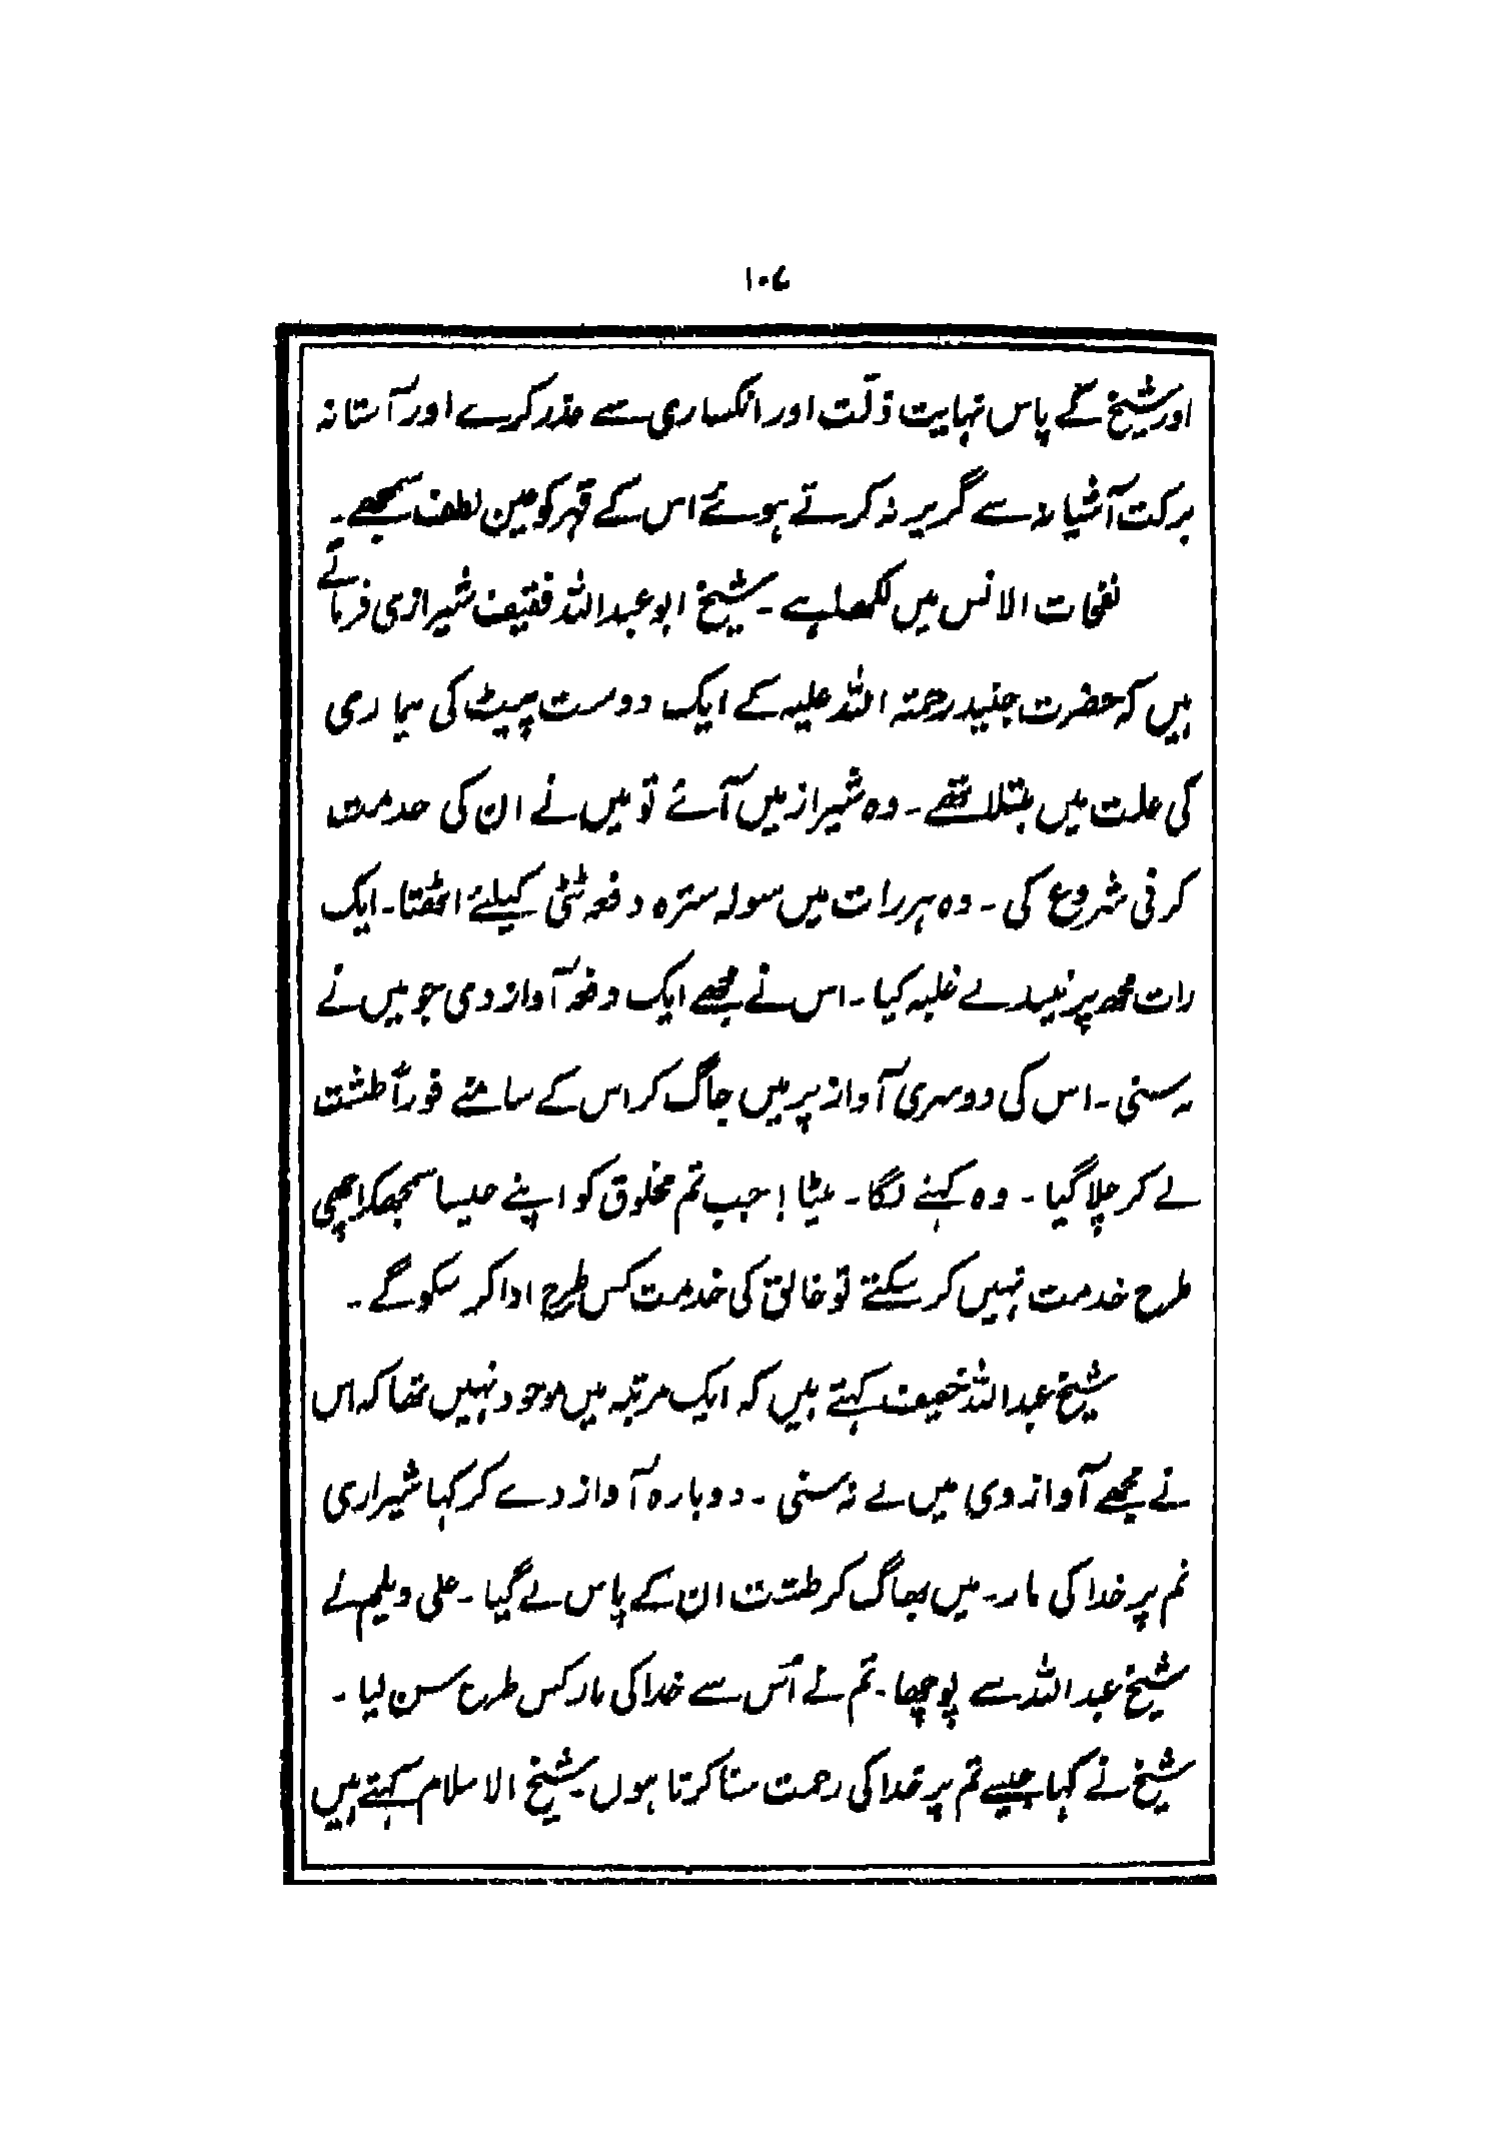 ۱۰۷
اور شیخ کے پاس نہایت ذلّت اور انکساری سے عذر کرے اور آستانہ
برکت آشیانہ سے گریز نہ کرتے ہوئے اس کے قہر کو عین لطف سمجھے۔
نفحات الانس میں لکھا ہے۔ شیخ ابو عبداللہ فقیف شیرازی فرماتے
ہیں کہ حضرت جنید رحمتہ اللہ علیہ کے ایک دوست پیٹ کی بیماری
کی علت میں مبتلا تھے۔ وہ شیراز میں آئے تو میں نے ان کی خدمت
کرنی شروع کی۔ وہ ہر رات میں سولہ سترہ دفعہ ٹٹی کیلئے اٹھتا۔ ایک
رات مجھ پر نیند نے غلبہ کیا۔ اس نے مجھے ایک دفعہ آواز دی جو میں نے
نہ سنی۔ اس کی دوسری آواز پر میں جاگ کر اس کے سامنے فوراً طشت
لے کر چلا گیا۔ وہ کہنے لگا۔ بیٹا! جب تم مخلوق کو اپنے جیسا سمجھکر اچھی
طرح خدمت نہیں کر سکتے تو خالق کی خدمت کس طرح ادا کر سکو گے۔
شیخ عبداللہ خفیف کہتے ہیں کہ ایک مرتبہ میں موجود نہیں تھا کہ اس
نے مجھے آواز دی میں نے نہ سنی۔ دوبارہ آواز دے کر کہا شیرازی
تم پر خدا کی مار۔ میں بھاگ کر طشت ان کے پاس لے گیا۔ علی ویلیم نے
شیخ عبداللہ سے پوچھا۔ تم نے اُس سے خدا کی مار کس طرح سن لیا۔
شیخ نے کہا جیسے تم پر خدا کی رحمت سنا کرتا ہوں۔ شیخ الاسلام کہتے ہیں